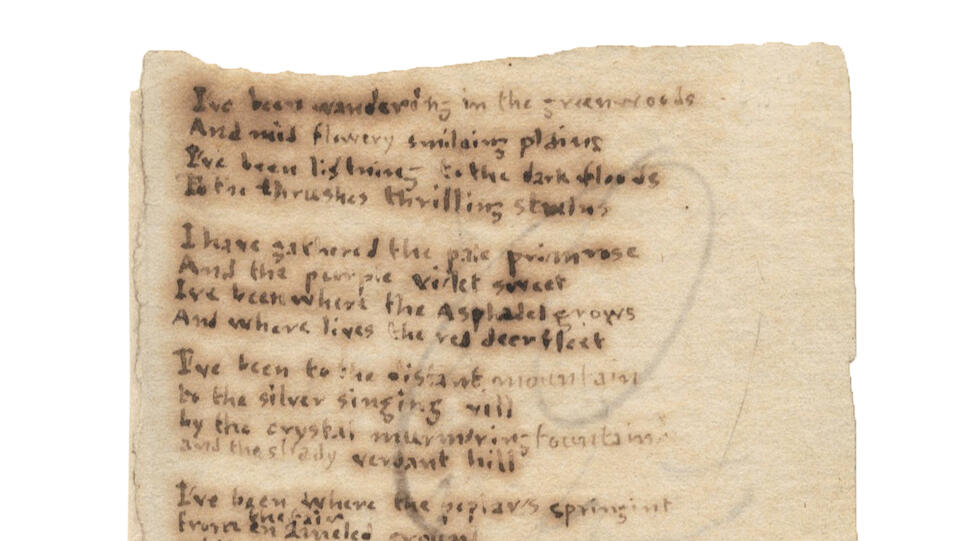 I've been wandering in the greenwoods
And mid flowery smilaing plains
I've been listning to the dark floods
To the thrushes thrilling strains
I have gathered the pale primrose
And the purple violet sweet
I've been where the Asphadel grows
And where lives the red deer fleet
I've been to the distant mountain
to the silver singing rill
by the crystal murmuring fountain
and the shady verdant hill
I've been where the poplar's springint
the fair
from enameled ground